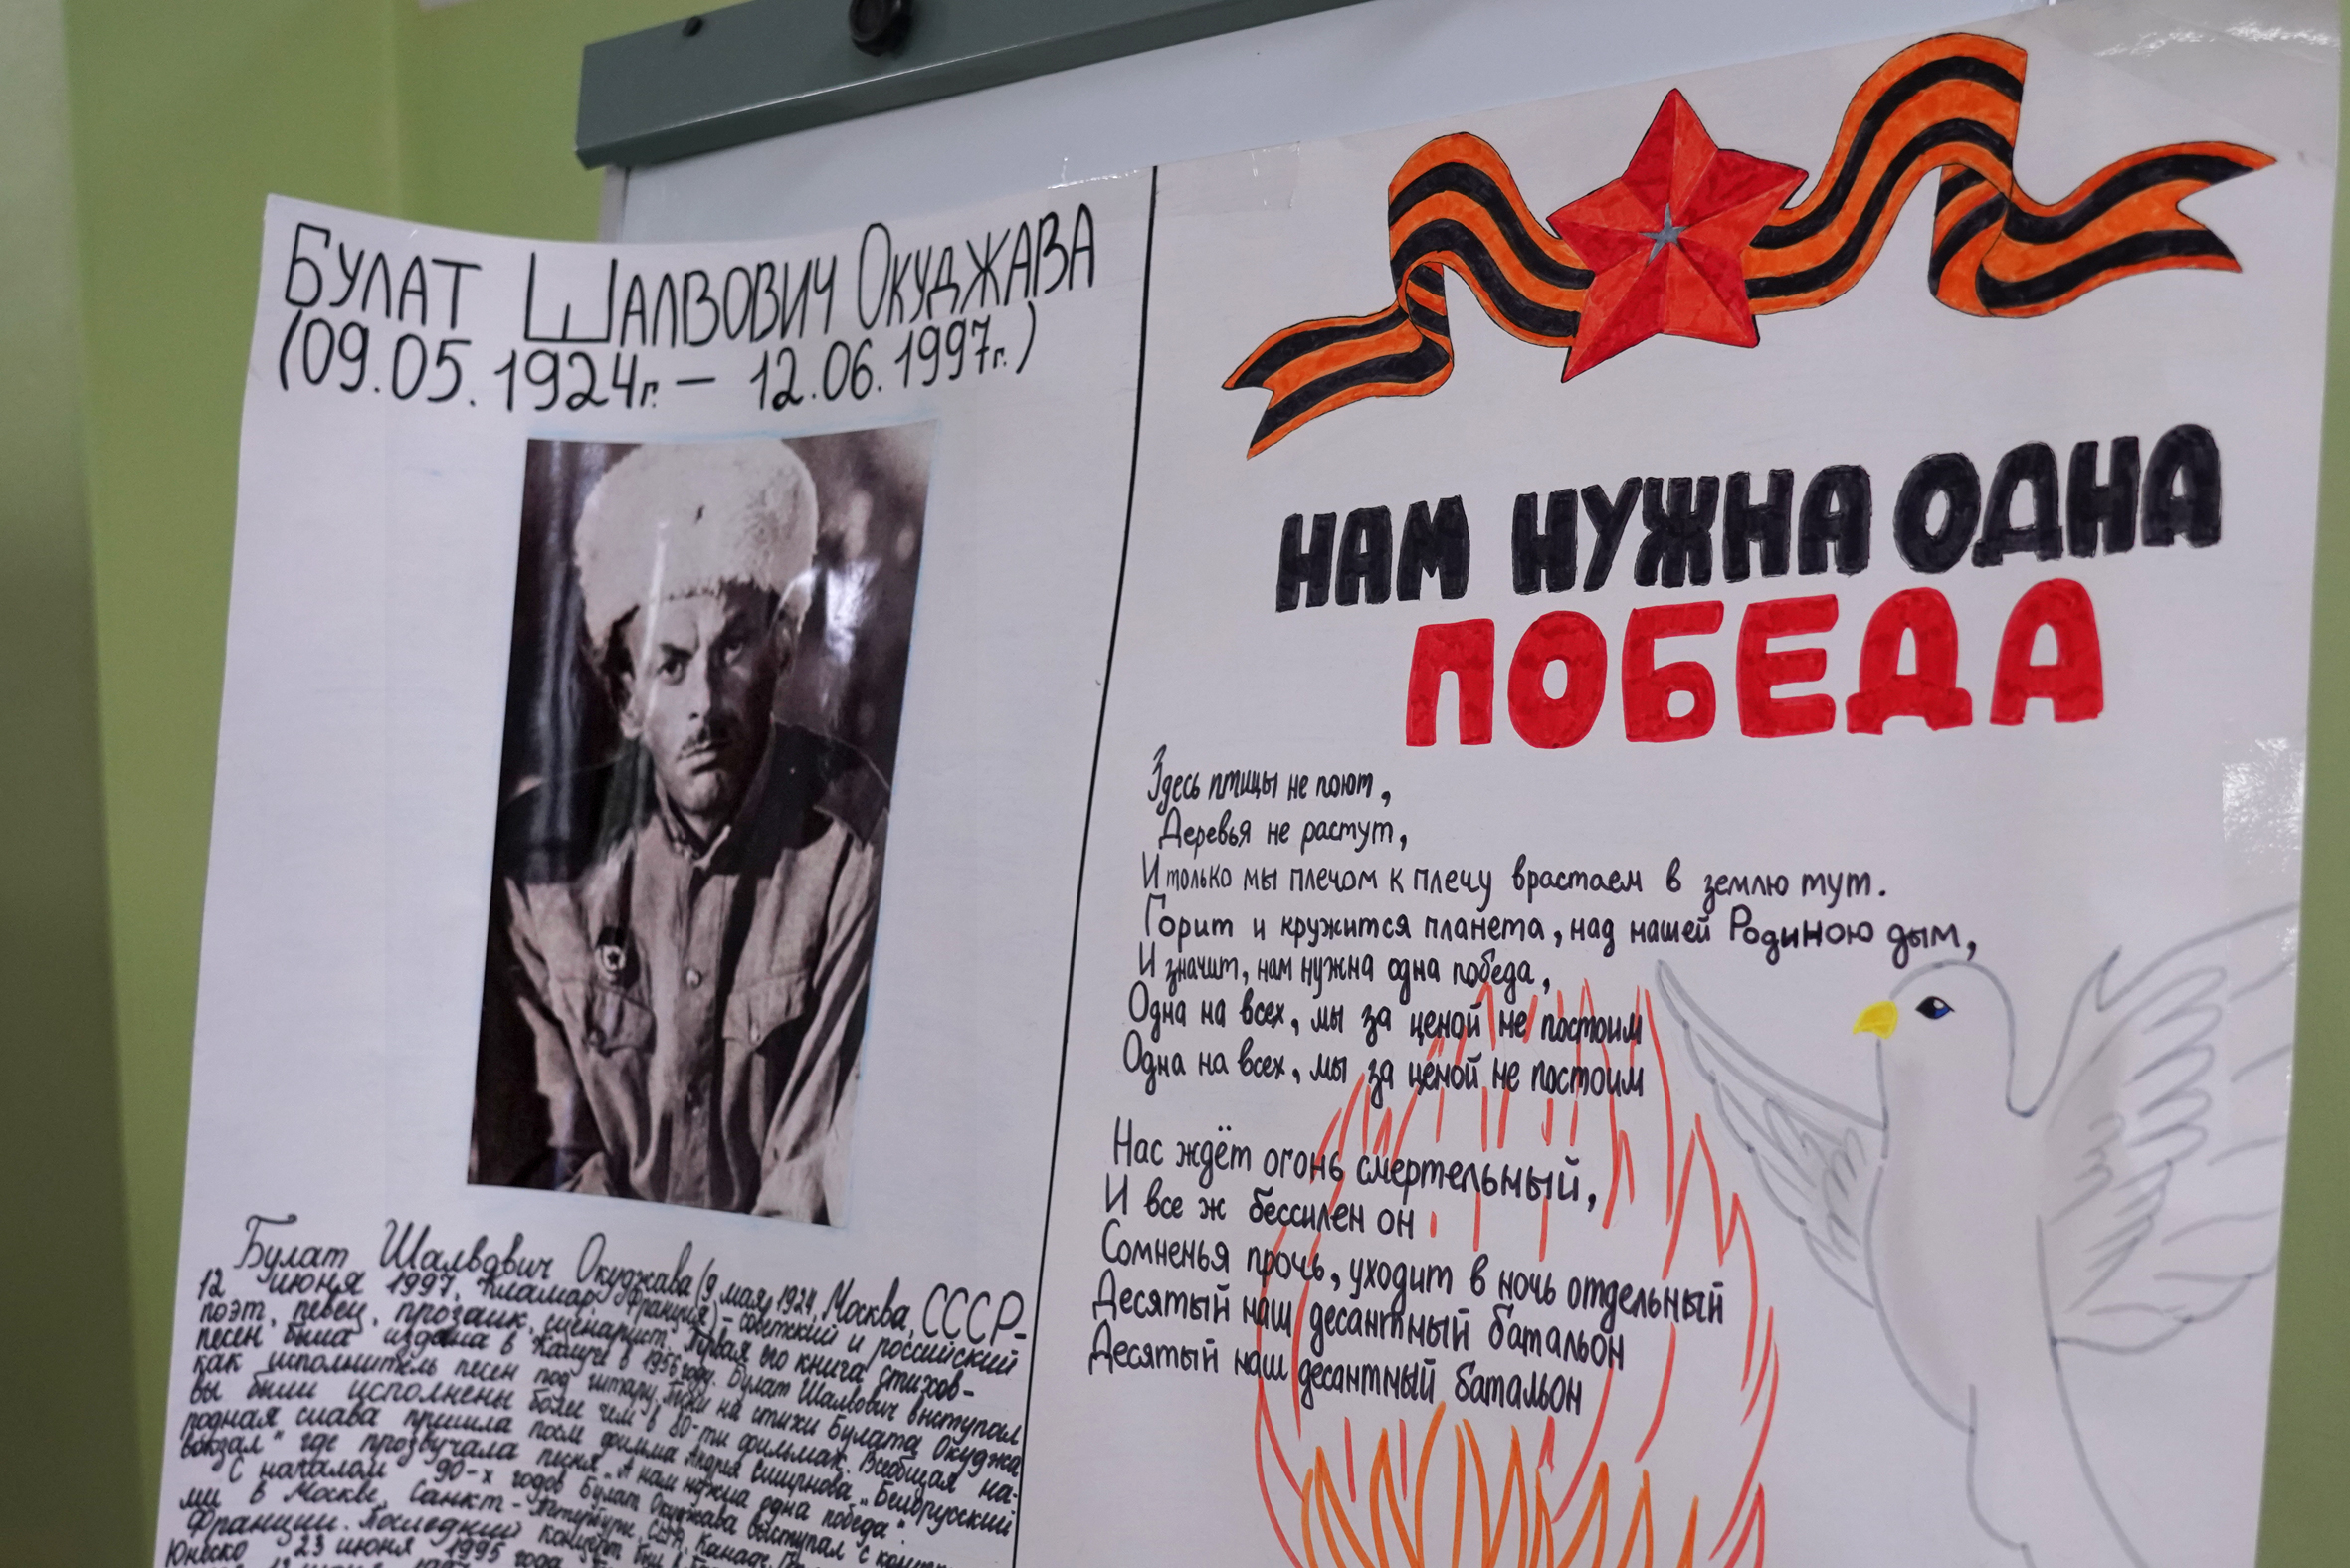 Булат Шалвович Окуджава
(09.05.1924г. – 12.06.1997г.)
Булат Шалвович Окуджава (9 мая 1924, Москва, СССР-
12 июня 1997, Кламар, Франция) – советский и российский
поэт, певец, прозаик, сценарист. Первая его книга стихов-
песен была издана в Калуге в 1956 году. Булат Шалвович выступал
как исполнитель песен под гитару. Песни на стихи Булата Окуджа
вы были исполнены более чем в 80-ти фильмах. Всеобщая на-
родная слава пришла после фильма Андрея Смирнова „Белорусский
вокзал" где прозвучала песня „А нам нужна одна победа".
С началом 90-х годов Булат Окуджава выступал с
ми в Москве, Санкт-Петербурге, США, Канаде,
Франции. Последний концерт был в
Юнеско 23 июня 1995 года
НАМ НУЖНА ОДНА
ПОБЕДА
Здесь птицы не поют,
Деревья не растут,
И только мы плечом к плечу врастаем в землю тут.
Горит и кружится планета, над нашей Родиною дым,
И значит, нам нужна одна победа,
Одна на всех, мы за ценой не постоим
Одна на всех, мы за ценой не постоим
Нас ждёт огонь смертельный,
И все ж бессилен он
Сомненья прочь, уходит в ночь отдельный
Десятый наш десантный батальон
Десятый наш десантный батальон